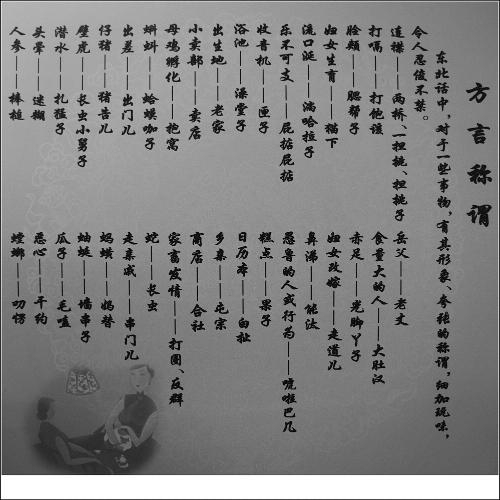 方言称谓
东北话中，对于一些事物，有其形象、夸张的称谓，细加玩味，
令人忍俊不禁。
连襟——两桥、一担挑、担挑子
打嗝——打饱该
脸颊——腮帮子
妇女生育——猫下
流口涎——淌哈拉子
乐不可支——屁掂屁掂
收音机——匣子
浴池——澡堂子
出生地——老家
小卖部——卖店
母鸡孵化——抱窝
蝌蚪——蛤蟆咖子
出差——出门儿
仔猪——猪羔儿
壁虎——长虫小舅子
潜水——扎猛子
头晕——迷糊
人参——棒槌
岳父——老丈
食量大的人——大肚汉
赤足——光脚丫子
妇女改嫁——走道儿
鼻涕——能汰
愚鲁的人或行为——虎啦巴几
糕点——果子
日历本——白扯
乡亲——屯亲
商店——合社
家畜发情——打圈、反群
蛇——长虫
走亲戚——串门儿
蚂蟥——蚂替
蚰蜒——墙串子
瓜子——毛嗑
恶心——干约
螳螂——刀愣